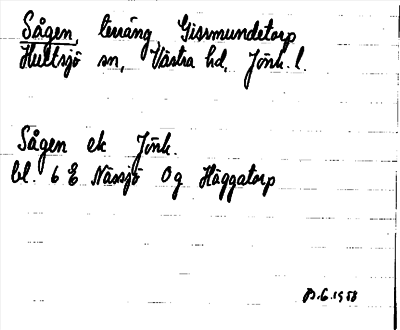 Sågen, terräng, Gissmundetorp
Hultsjö sn, Västra hd, Jönk. l.
Sågen ek Jönk.
bl. 6 E Nässjö 0g Häggatorp